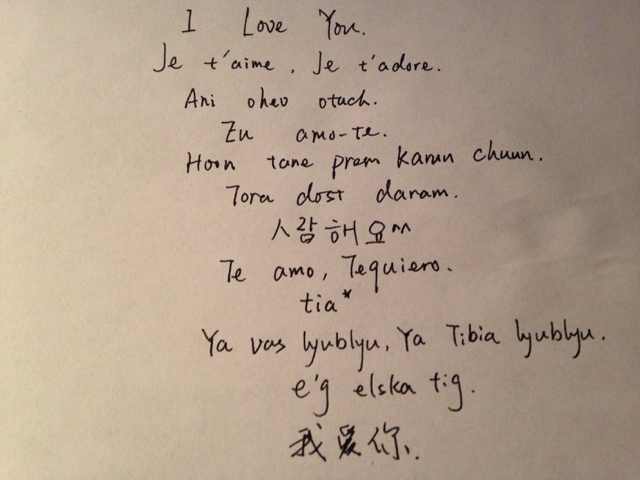 I Love You.
Je t'aime, Je t'adore.
Ani ohev otach.
Eu amo-te.
Hoon tane prem karun chuun.
Tora dost daram.
사랍해요^^
Te amo, Tequiero.
tia*
Ya vas lyublyu, Ya Tibia lyublyu.
e'g elska tig.
我爱你.